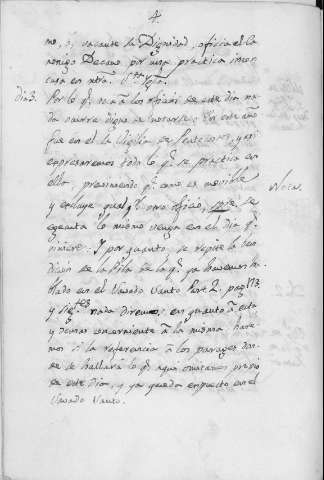 4.
mo, ó, vacante la Dignidad, oficia el Ca
nonigo Decano por una practica incon
cusa en ntra. Sta. Yga.
dia 3. Por lo q. toca à los oficios de este dia na
da ocurre digno de notarse: En este año
fue en el la Vigilia de Pentecostes, y asi
expresaremos todo lo q. se practica en
ella, previniendo q. como es movible Nota.
y excluye qualq. otro oficio, spre. se
egecuta lo mismo venga en el dia q.
viniere. Y por quanto se repite la ben
dicion de la Pila de la q. ya havemos ha
blado en el Savado Santo Part. 2. pag. 173.
y sigtes. nada diremos en quanto à esta
y demas concerniente à la misma: hare
mos sí la referencia à los parages don
de se hallara lo q. aqui omitamos preciso
de este dia, y ya queda expuesto en el
Savado Santo.